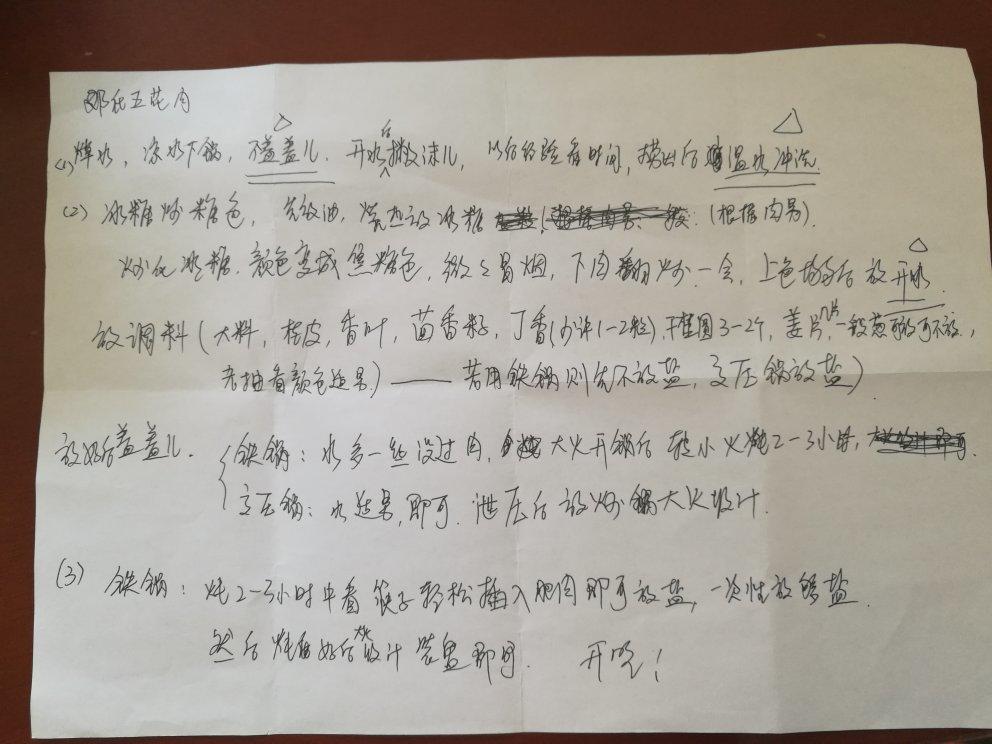 邓氏五花肉
(1) 焯水，凉水下锅，不盖盖儿．开水后撇沫儿，以后经验看时间，捞出后温水冲洗．
(2) 冰糖炒糖色，先放油，烧热放冰糖（根据肉量）．
炒化冰糖．颜色变成焦糖色，微微冒烟，下肉翻炒一会，上色均匀后放开水．
放调料（大料，桂皮，香叶，茴香籽，丁香（少许1-2粒），干桂圆3-2个，姜片几片，一般葱可放可不放，
老抽看颜色适量）——若用铁锅则先不放盐，高压锅放盐）
放好后盖盖儿．
铁锅：水多一些没过肉，大火开锅后转小火炖2-3小时，
高压锅：水适量，即可．泄压后放炒锅大火收汁．
(3) 铁锅：炖2-3小时中看筷子轻松插入肥肉即可放盐，一次性放够盐．
然后炖好后大火收汁装盘即可． 开吃！